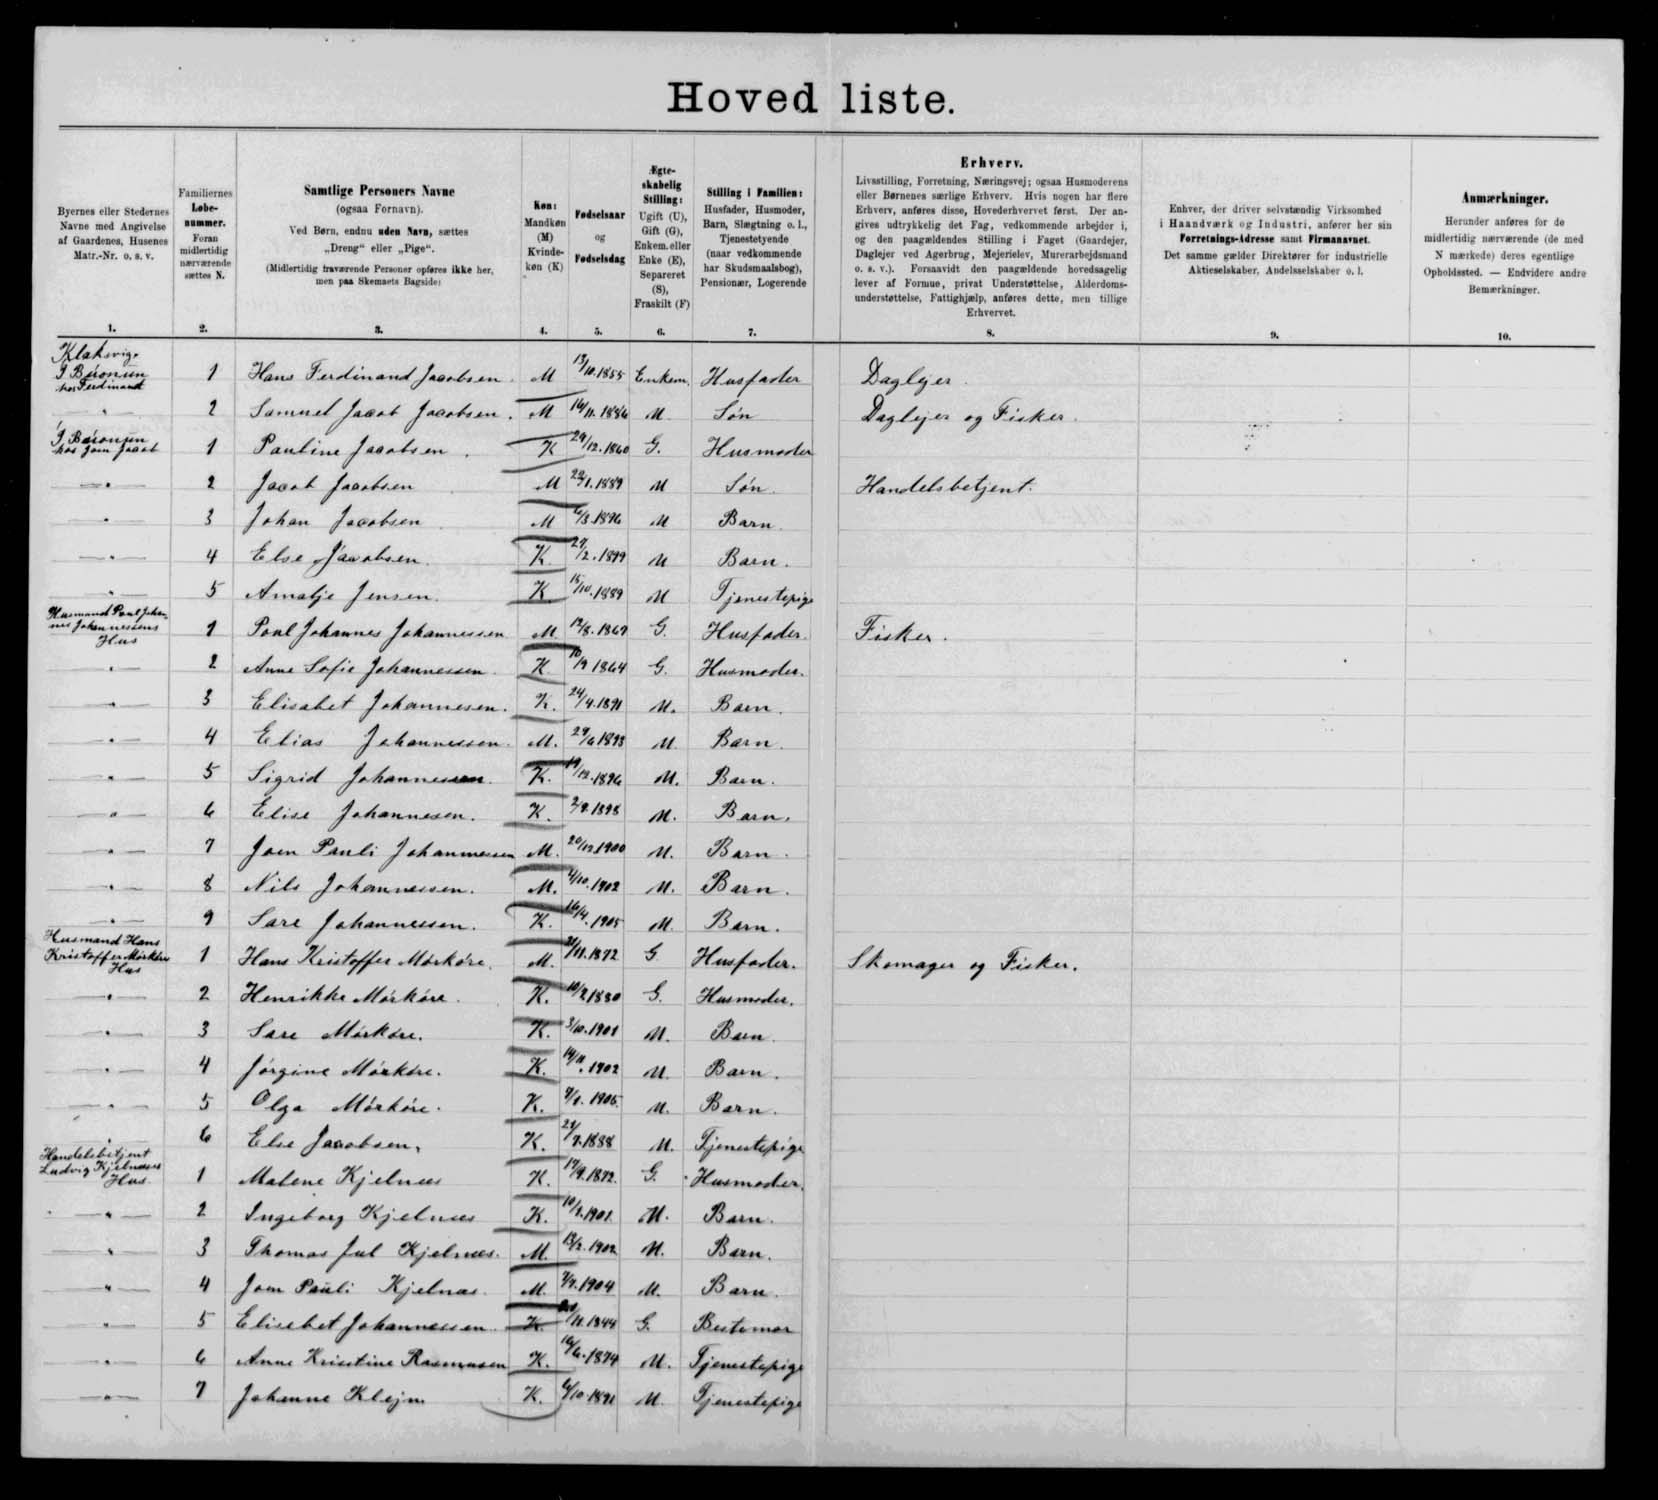 Hoved liste.
Byernes eller Stedernes
Navne med Angivelse
af Gaardenes, Husenes
Matr.-Nr. o. s. v.
1.
Familiernes
Løbe-
nummer.
Foran
midlertidig
nærværende
sættes N.
2.
Samtlige Personers Navne
(ogsaa Fornavn).
Ved Børn, endnu uden Navn, sættes
„Dreng“ eller „Pige“.
(Midlertidig fraværende Personer opføres ikke her,
men paa Skemaets Bagside)
3.
Køn:
Mandkøn
(M)
Kvinde-
køn (K)
4.
Fødselsaar
og
Fødselsdag
5.
Ægte-
skabelig
Stilling:
Ugift (U),
Gift (G),
Enkem. eller
Enke (E),
Separeret
(S),
Fraskilt (F)
6.
Stilling i Familien:
Husfader, Husmoder,
Barn, Slægtning o. l.,
Tjenestetyende
(naar vedkommende
har Skudsmaalsbog),
Pensionær, Logerende
7.
Erhverv.
Livsstilling, Forretning, Næringsvej; ogsaa Husmoderens
eller Børnenes særlige Erhverv. Hvis nogen har flere
Erhverv, anføres disse, Hovederhvervet først. Der an-
gives udtrykkelig det Fag, vedkommende arbejder i,
og den paagældendes Stilling i Faget (Gaardejer,
Daglejer ved Agerbrug, Mejerielev, Murerarbejdsmand
o. s. v.). Forsaavidt den paagældende hovedsagelig
lever af Formue, privat Understøttelse, Alderdoms-
understøttelse, Fattighjælp, anføres dette, men tillige
Erhvervet.
8.
Enhver, der driver selvstændig Virksomhed
i Haandværk og Industri, anfører her sin
Forretnings-Adresse samt Firmanavnet.
Det samme gælder Direktører for industrielle
Aktieselskaber, Andelsselskaber o. l.
9.
Anmærkninger.
Herunder anføres for de
midlertidig nærværende (de med
N mærkede) deres egentlige
Opholdssted. — Endvidere andre
Bemærkninger.
10.
Klaksvig.
hos Ferdinand
1 Hans Ferdinand Jacobsen. M 13/10.1855 Enkem. Husfader Daglejer.
2 Samuel Jacob Jacobsen. M 16/11.1886 U Søn Daglejer og Fisker.
hos Joen Jacob
1 Pauline Jacobsen. K 29/12.1860 G. Husmoder
2 Jacob Jacobsen M 22/1.1889 U Søn. Handelsbetjent.
3 Johan Jacobsen M 6/3.1896 U Barn
4 Else Jacobsen. K 27/2.1899 U Barn.
5 Amalje Jensen. K. 15/10.1889 U Tjenestepige
Husmand Poul Johan-
nes Johannessens
Hus
1 Poul Johannes Johannessen M. 12/8.1867 G. Husfader. Fisker.
2 Anne Sofie Johannessen. K. 10/9 1864 G. Husmoder.
3 Elisabet Johannesen. K. 24/4.1891 U. Barn.
4 Elias Johannessen. M. 29/6 1893 U. Barn.
5 Sigrid Johannessen. K. 19/12.1896 U. Barn.
6 Elise Johannesen. K. 2/9.1898 U. Barn.
7 Joen Pauli Johannessen M. 20/12.1900 U. Barn.
8 Nils Johannessen. M. 4/10.1902 U. Barn.
9 Sare Johannessen. K. 16/4.1905 U. Barn.
Husmand Hans
Kristoffer Mörköres
Hus
1 Hans Kristoffer Mörköre. M. 21/11.1872 G Husfader. Skomager og Fisker.
2 Henrikke Mörköre. K. 10/2.1880 G. Husmoder.
3 Sare Mörköre. K. 3/10.1901 U. Barn.
4 Jörgine Mörköre. K. 14/11.1902 U. Barn.
5 Olga Mörköre. K. 1905. U. Barn.
6 Else Jacobsen. K. 1888 U. Tjenestepige
Handelsbetjent
Ludvig Kjelnæses
Hus.
1 Malene Kjelnæs K. 17/9.1872. G. Husmoder.
2 Ingeborg Kjelnæs K. 1901. U. Barn.
3 Thomas Jul Kjelnæs. M. 13/2.1902. U. Barn.
4 Joen Pauli Kjelnæs. M. 1904 U. Barn.
5 Elisabet Johannessen. K. 11.1844 G. Bestemor
6 Anne Kristine Rasmussen K. 16/6.1874 U. Tjenestepige
7 Johanne Klejn. K. 6/10.1891 U. Tjenestepige